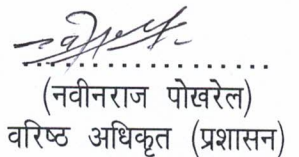 (नवीनराज पोखरेल)
वरिष्ठ अधिकृत (प्रशासन)